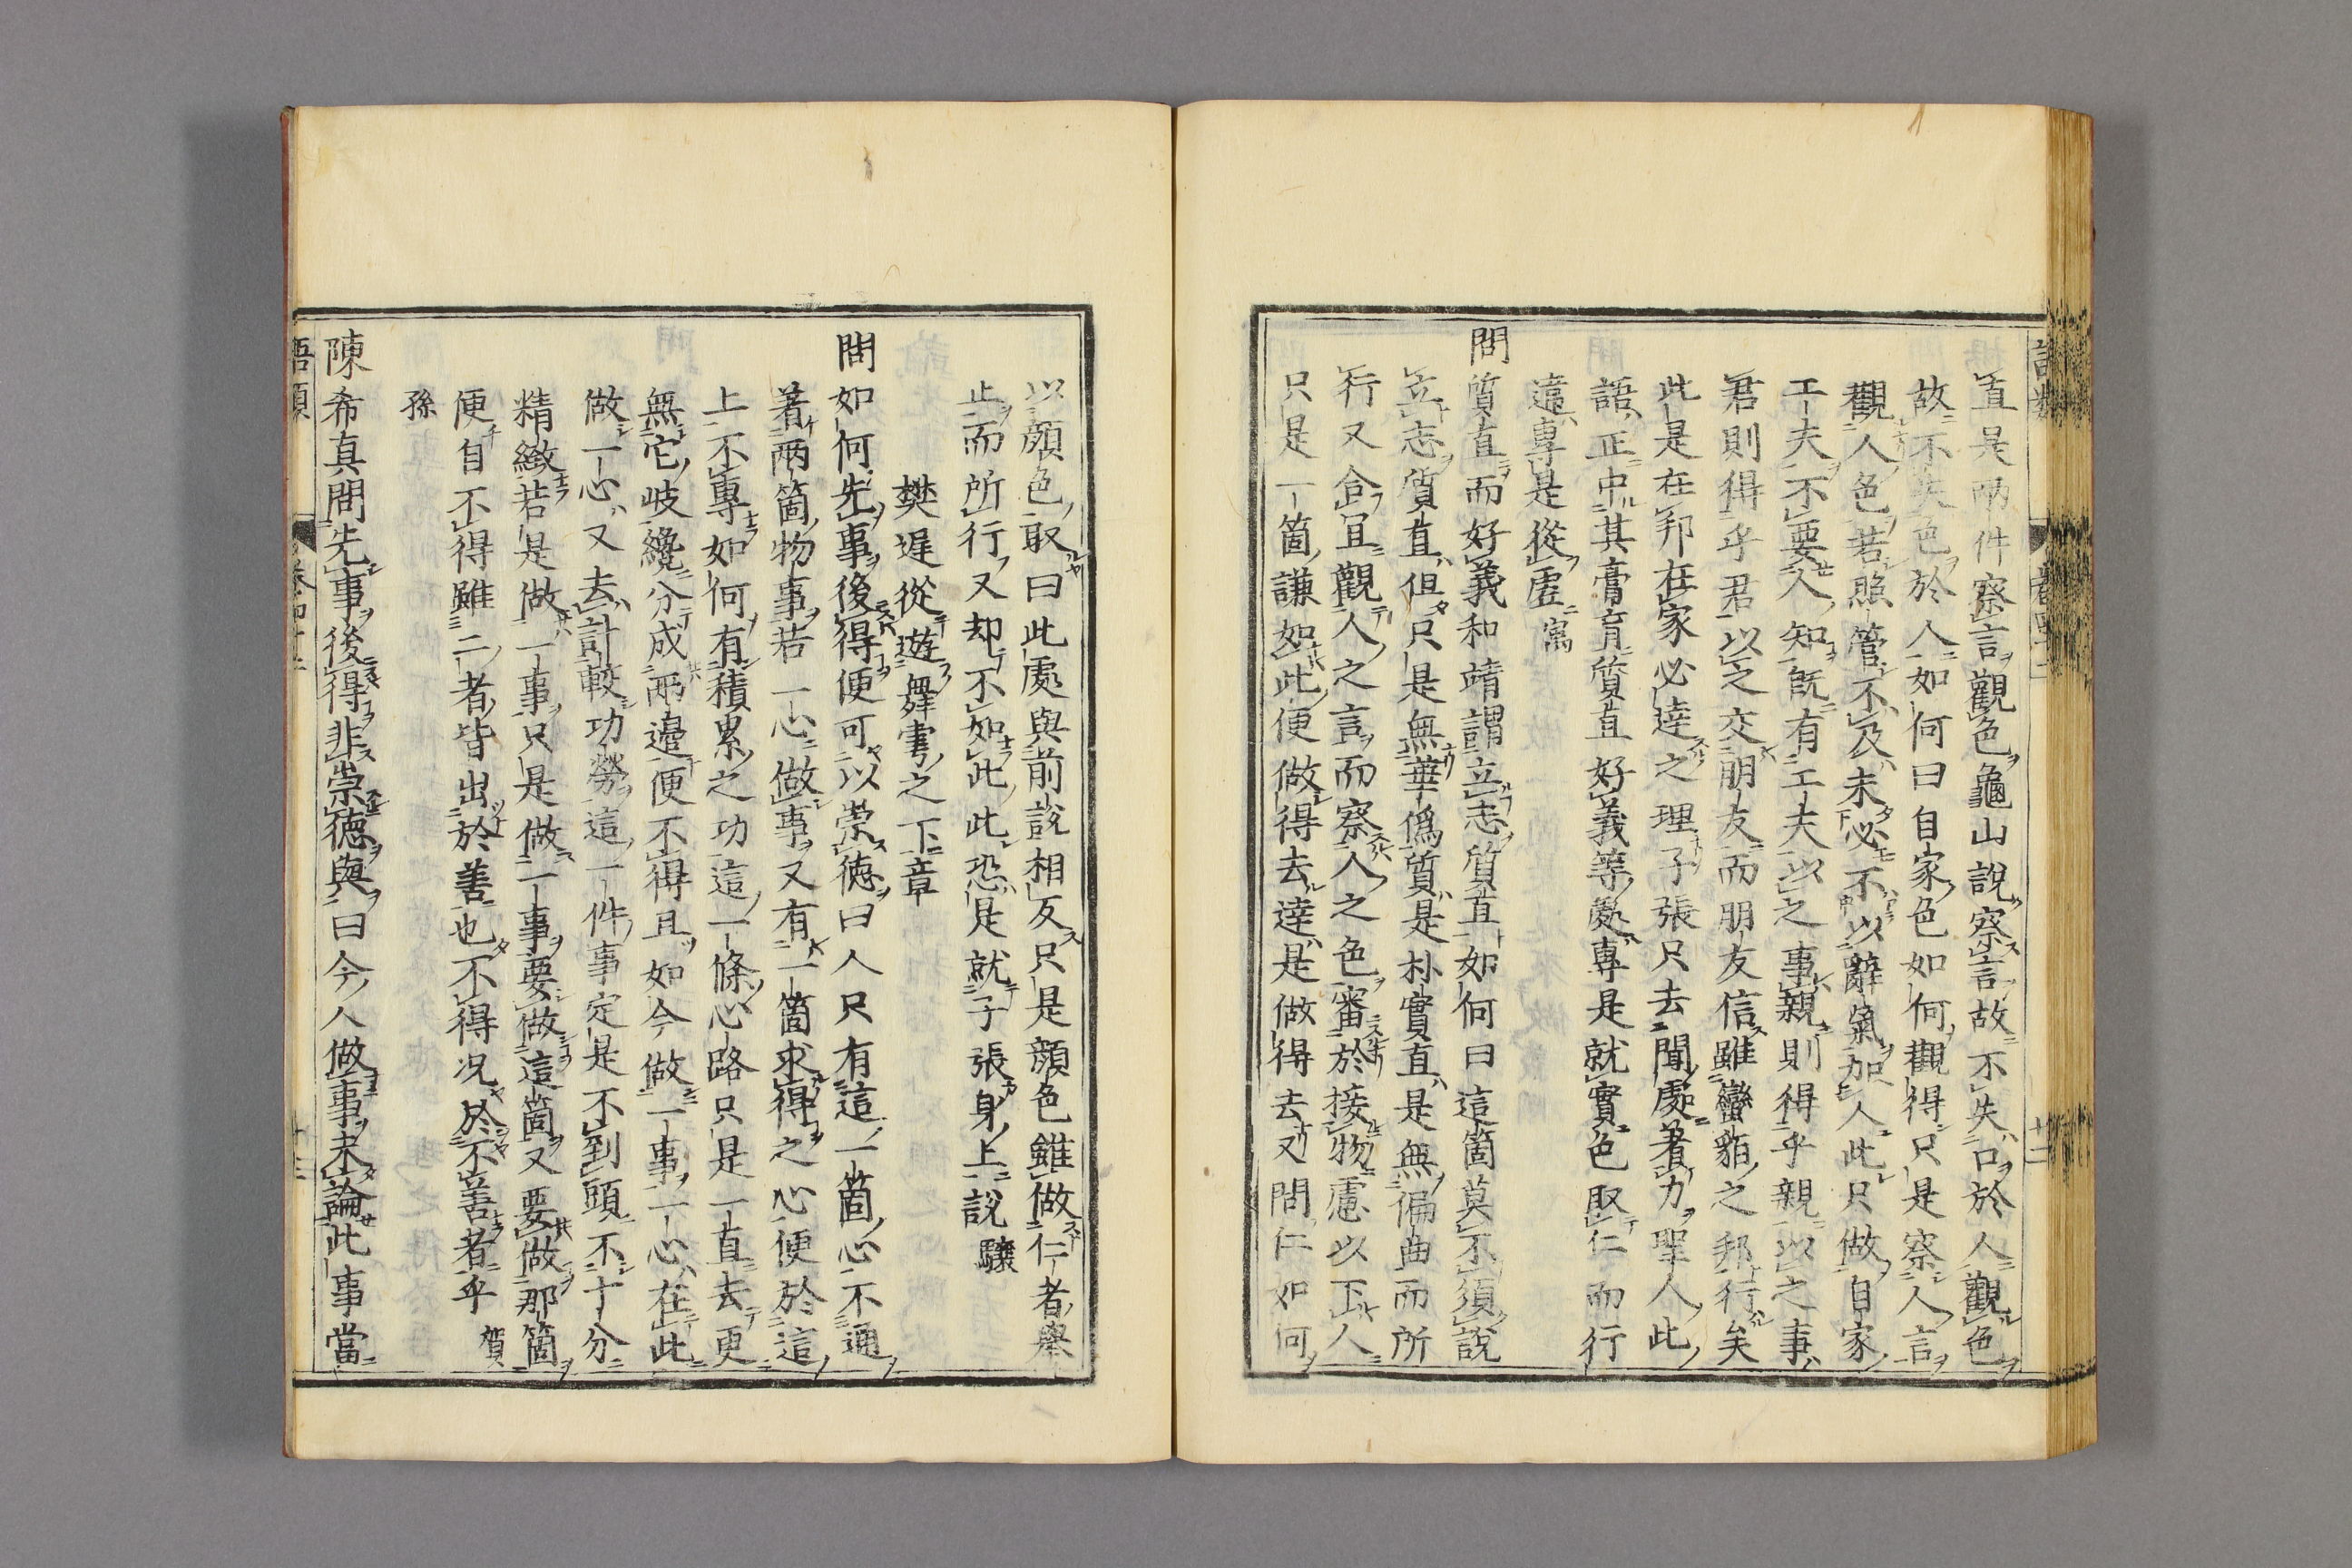 直是兩件察言觀色龜山說察言故不失口於人觀色
故不失色於人如何曰自家色如何觀得只是察人言
觀人色若照管不及未必不以辭氣加人此只做自家
工夫不要人知既有工夫以之事親則得乎親以之事
君則得乎君以之交朋友而朋友信雖蠻貊之邦行矣
此是在邦在家必達之理子張只去聞處著力聖人此
語正中其膏肓質直好義等處專是就實色取仁而行
違專是從虛㝢
問質直而好義和靖謂立志質直如何曰這箇莫不須說
立志質直但只是無華偽質是朴實直是無偏曲而所
行又合宜觀人之言而察人之色審於接物慮以下人
只是一箇謙如此便做得去達是做得去又問仁如何
以顔色取曰此處與前說相反只是顔色雖做仁者舉
止而所行又却不如此此恐是就子張身上說驤
樊遲從遊舞雩之下章
問如何先事後得便可以崇德曰人只有這一箇心不通
著兩箇物事若一心做事又有一箇求得之心便於這
上不專如何有積累之功這一條心路只是一直去更
無它岐纔分成兩邊便不得且如今做一事一心在此
做一心又去計較功勞這一件事定是不到頭不十分
精緻若是做一事只是做一事要做這箇又要做那箇
便自不得雖二者皆出於善也不得况於不善者乎賀
孫
陳希真問先事後得非崇德與曰今人做事未論此事當
語類
卷四十二
十三